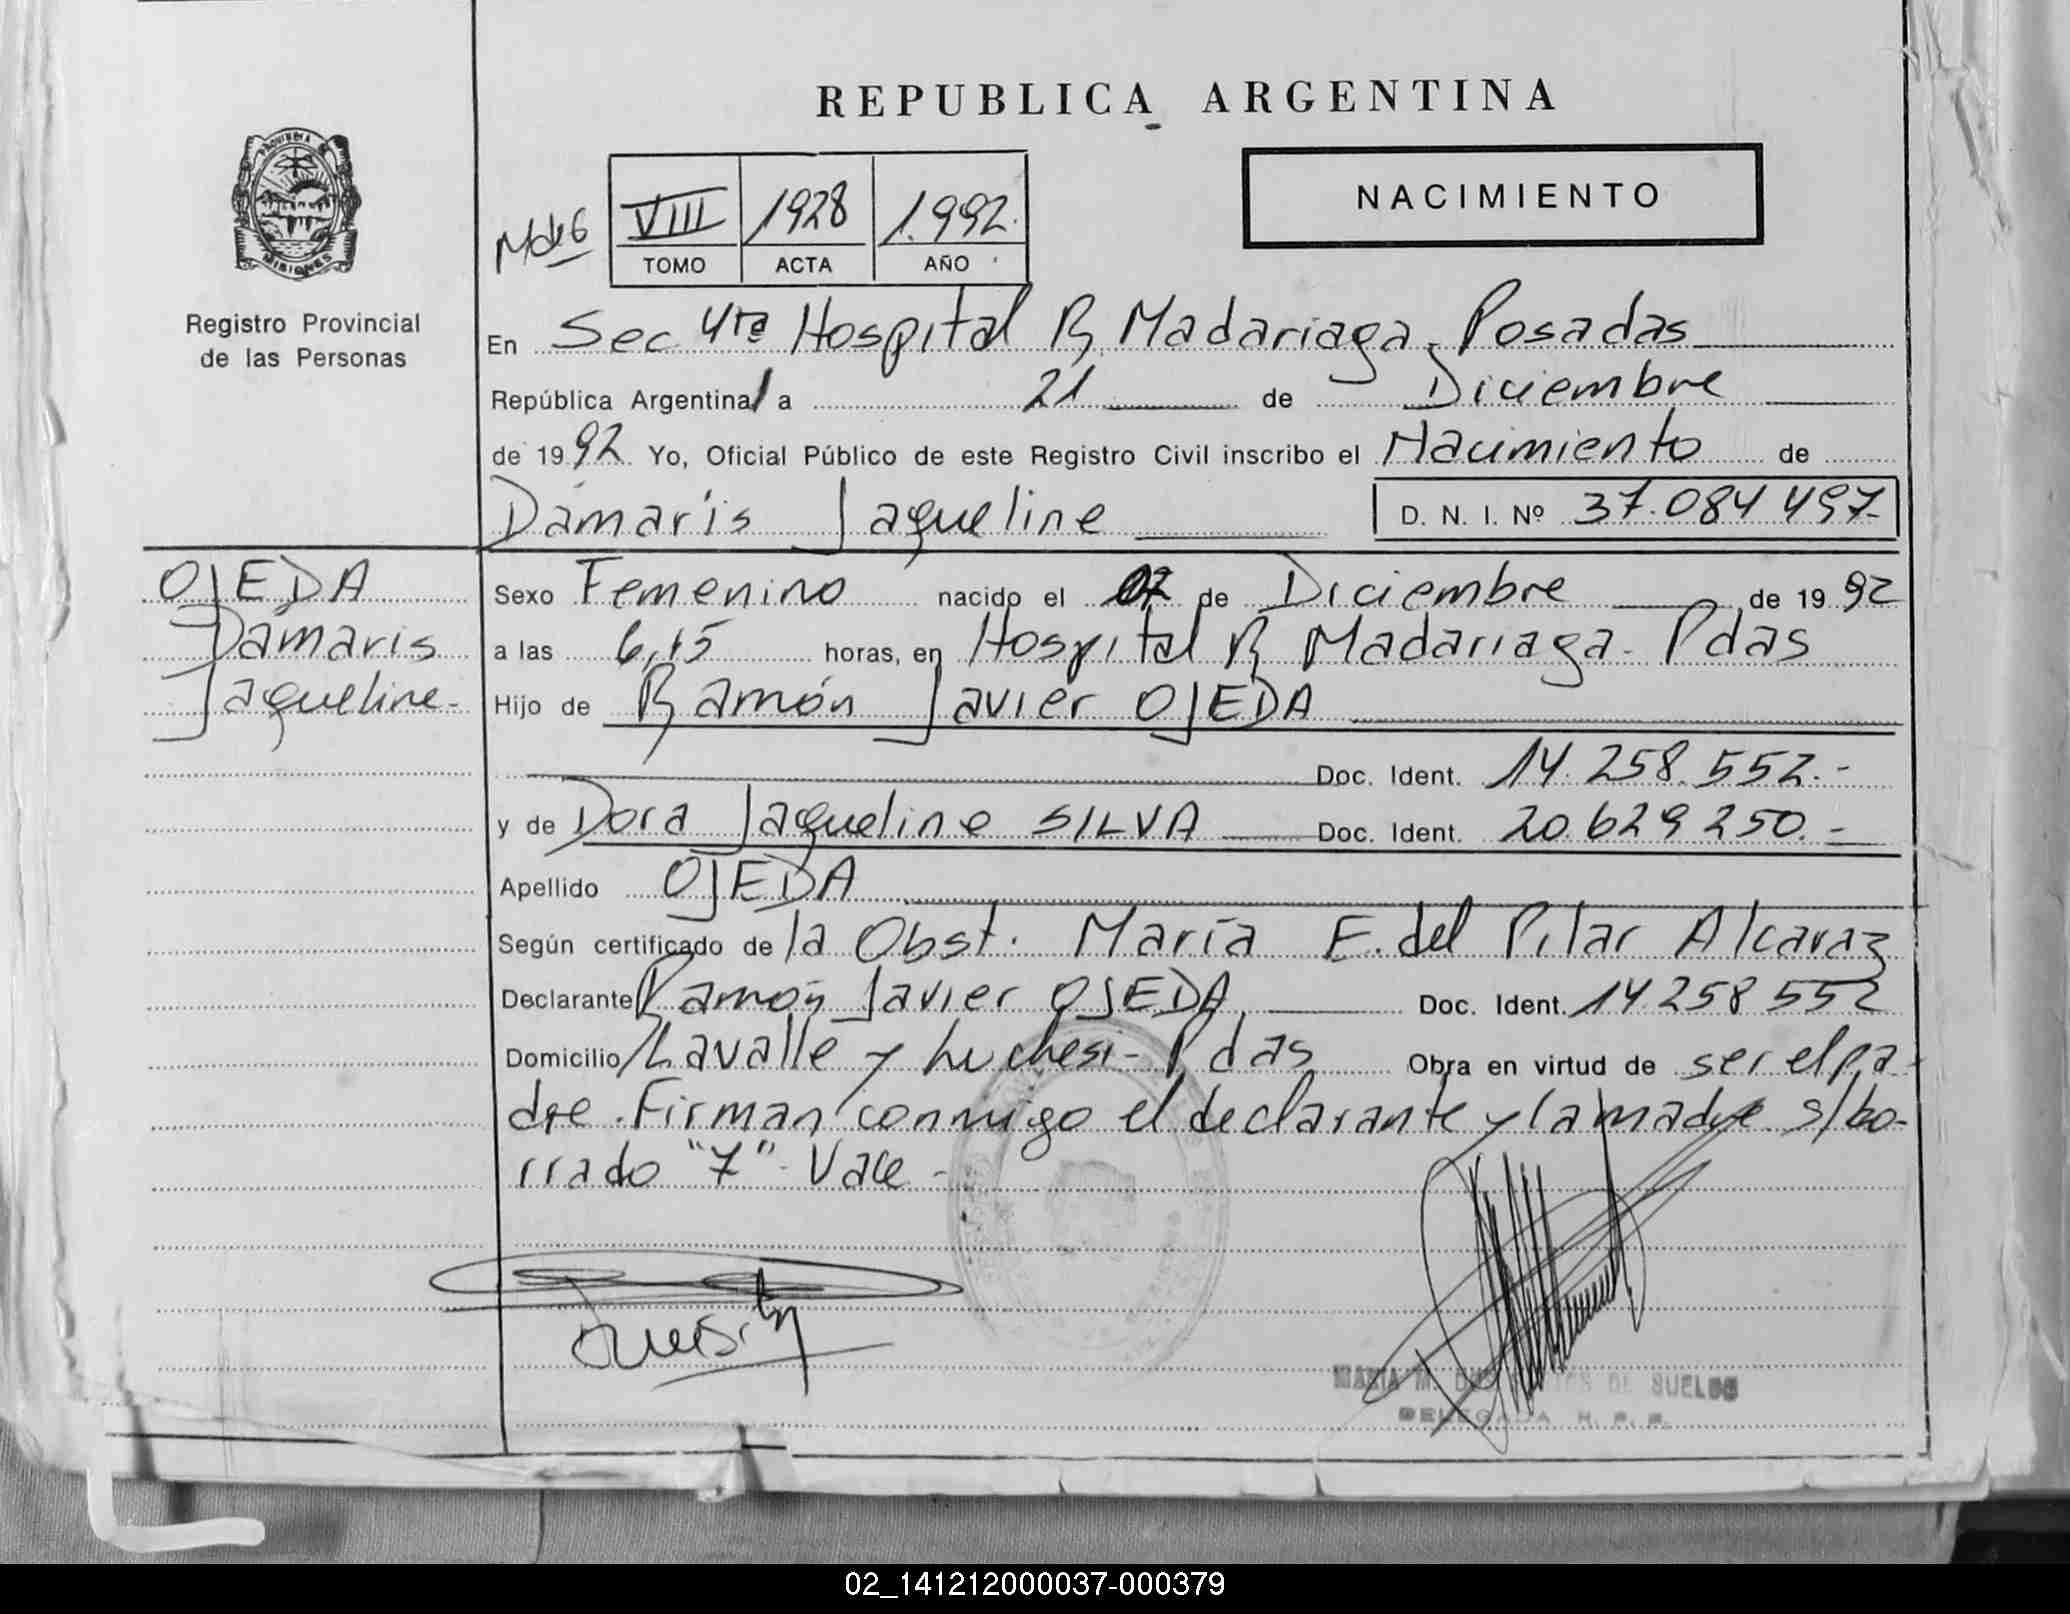 REPUBLICA ARGENTINA
NACIMIENTO
PROVINCIA DE MISIONES
Registro Provincial
de las Personas
VIII 1928 1.992.
TOMO ACTA AÑO
En Sec 4ta Hospital R. Madariaga. Posadas
República Argentina, a 21 de Diciembre
de 1992 Yo, Oficial Público de este Registro Civil inscribo el Nacimiento de
Dámaris Jaqueline D. N. I. Nº 37.084 497-
OJEDA
Damaris
Jaqueline-
Sexo Femenino nacido el 07 de Diciembre de 1992
a las 6,15 horas, en Hospital R Madariaga - Pdas
Hijo de Ramón Javier OJEDA
Doc. Ident. 14.258.552.-
y de Dora Jaqueline SILVA Doc. Ident. 20.629 250.-
Apellido OJEDA
Según certificado de la Obst. María E. del Pilar Alcaraz
Declarante Ramón Javier OJEDA Doc. Ident. 14.258 552
Domicilio Lavalle y Luchesi - Pdas Obra en virtud de ser el pa-
dre. Firman conmigo el declarante y la madre s/bo-
rrado "7" - Vale -
MARIA M. DE SUELDO
DELEGADA R. P. P.
02_141212000037-000379